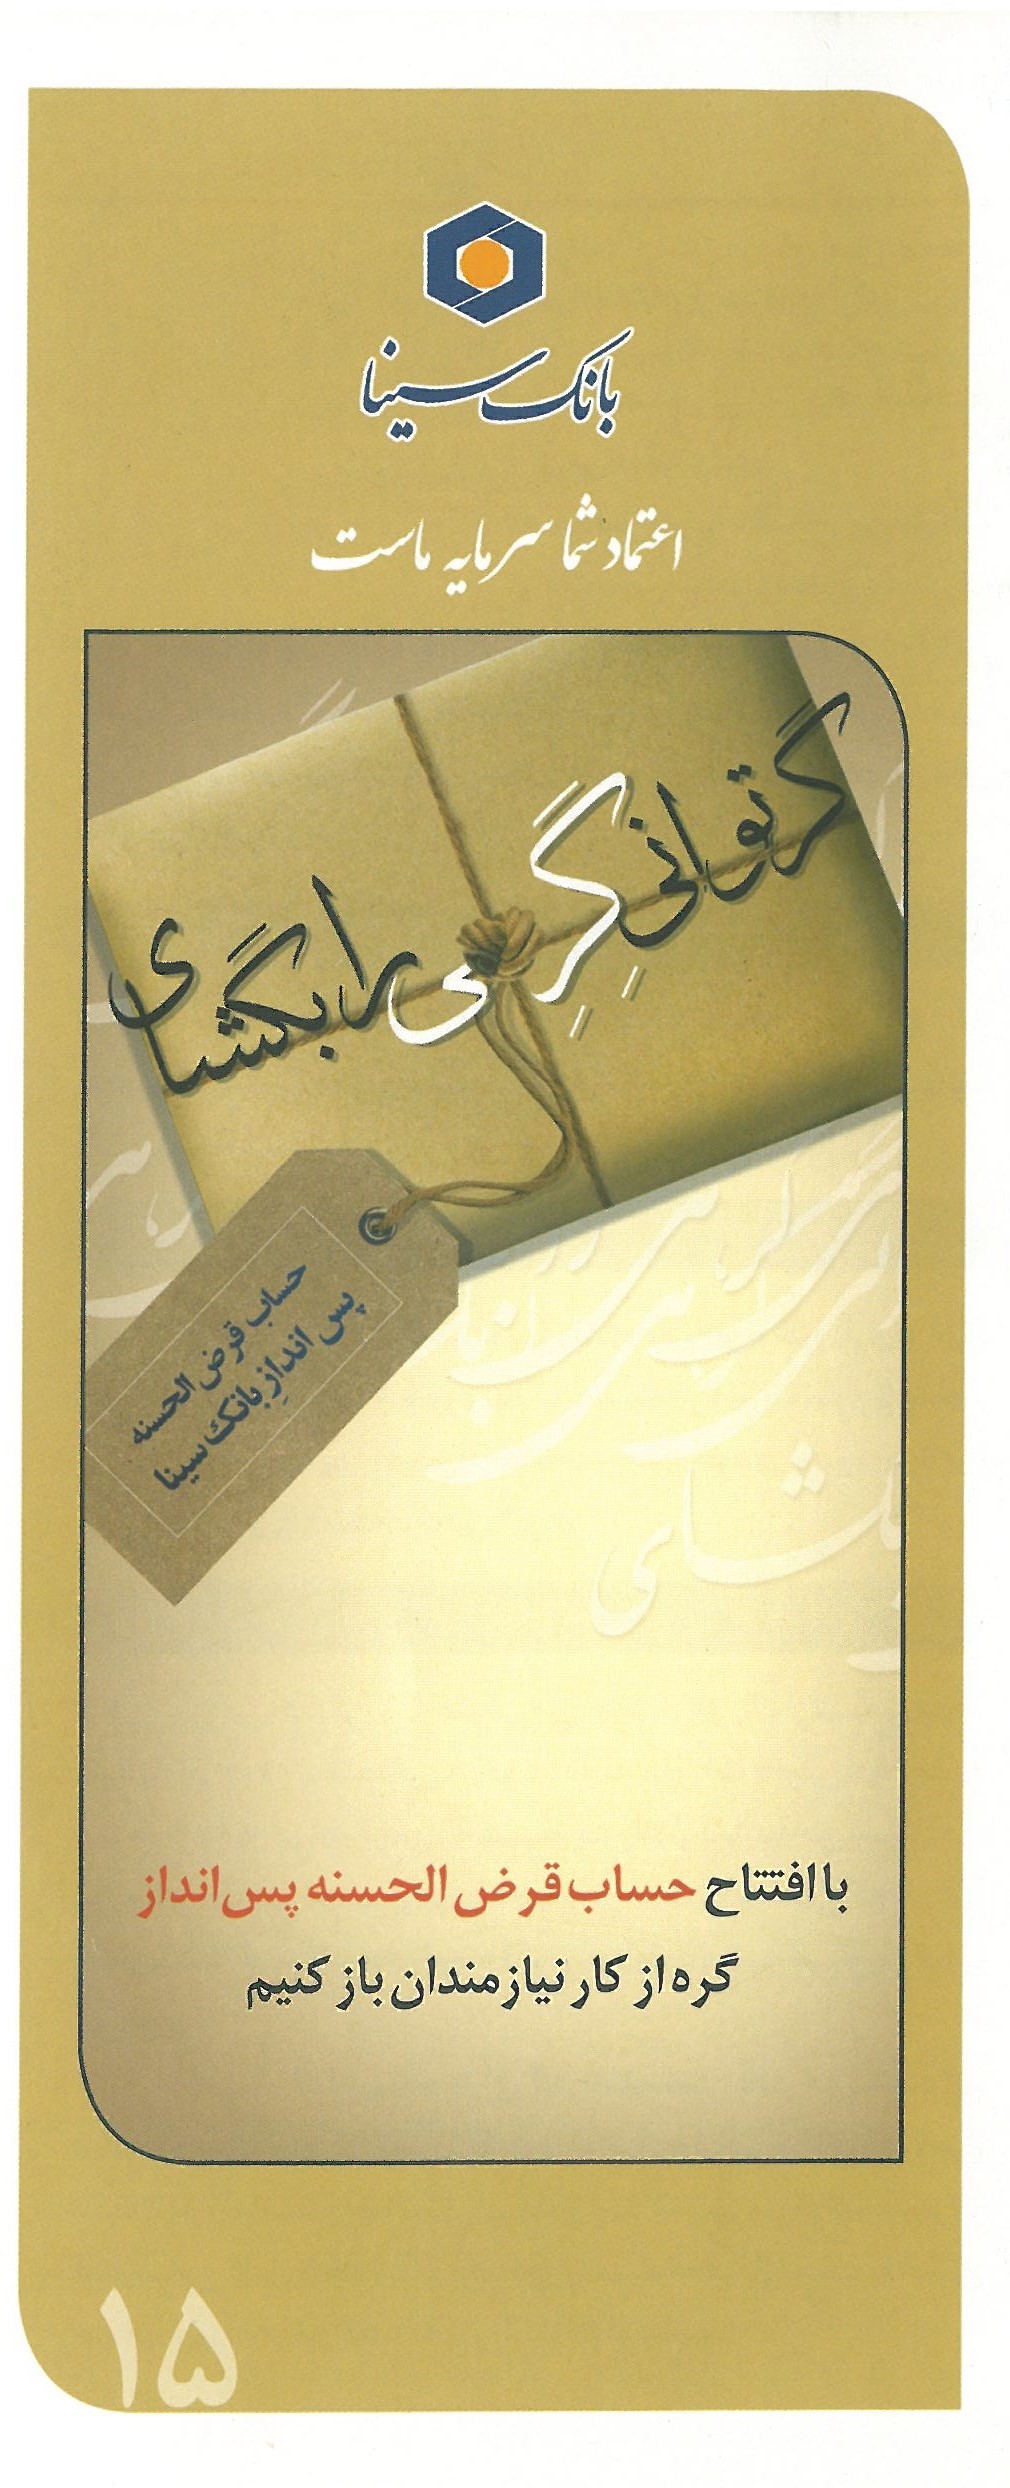 بانک سینا
اعتماد شما سرمایه ماست
گر توانی گِرِهی را بگشای
حساب قرض الحسنه
پس اندازِ بانک سینا
با افتتاح حساب قرض الحسنه پس‌انداز
گره از کار نیازمندان باز کنیم
۱۵